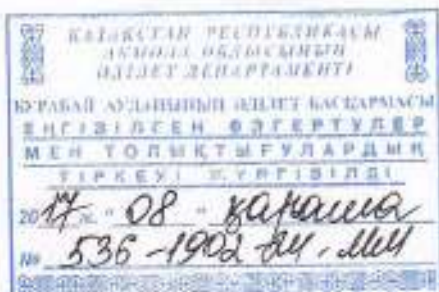 ҚАЗАҚСТАН РЕСПУБЛИКАСЫ
АҚМОЛА ОБЛЫСЫНЫҢ
ӘДІЛЕТ ДЕПАРТАМЕНТІ
БУРАБАЙ АУДАНЫНЫҢ ӘДІЛЕТ БАСҚАРМАСЫ
ЕНГІЗІЛГЕН ӨЗГЕРТУЛЕР
МЕН ТОЛЫҚТЫРУЛАРДЫҢ
ТІРКЕУІ ЖҮРГІЗІЛДІ
2017 ж. "08" қараша
№ 536-1902-